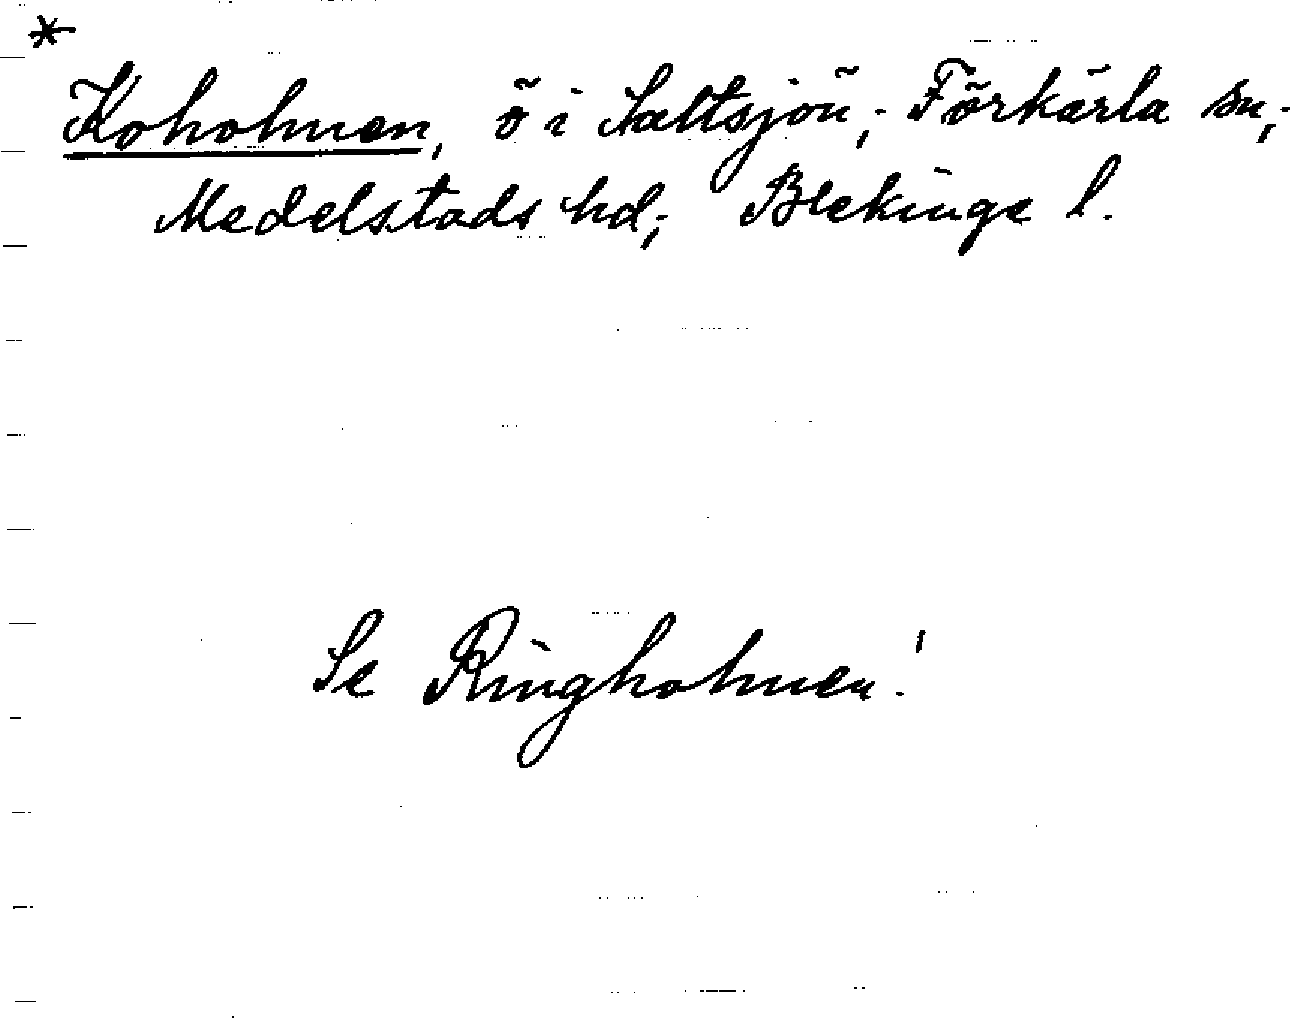 *
Koholmen, ö i Saltsjön,; Förkärla sn,;
Medelstads hd,; Blekinge l.
Se Ringholmen!